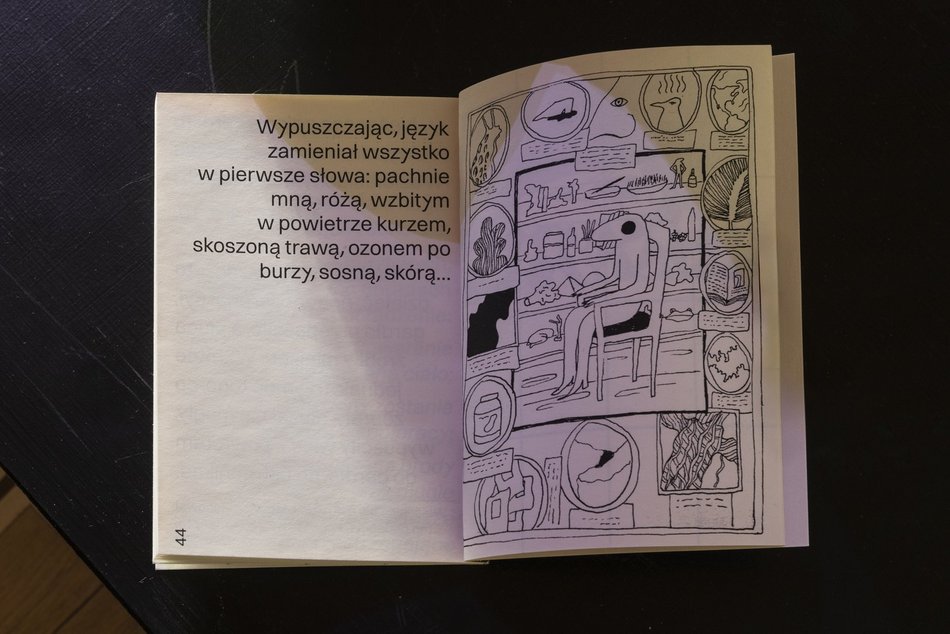 Wypuszczając, język
zamieniał wszystko
w pierwsze słowa: pachnie
mną, różą, wzbitym
w powietrze kurzem,
skoszoną trawą, ozonem po
burzy, sosną, skórą...
44